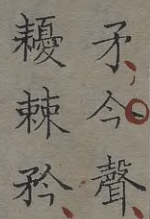 矛今聲
耰棘矜